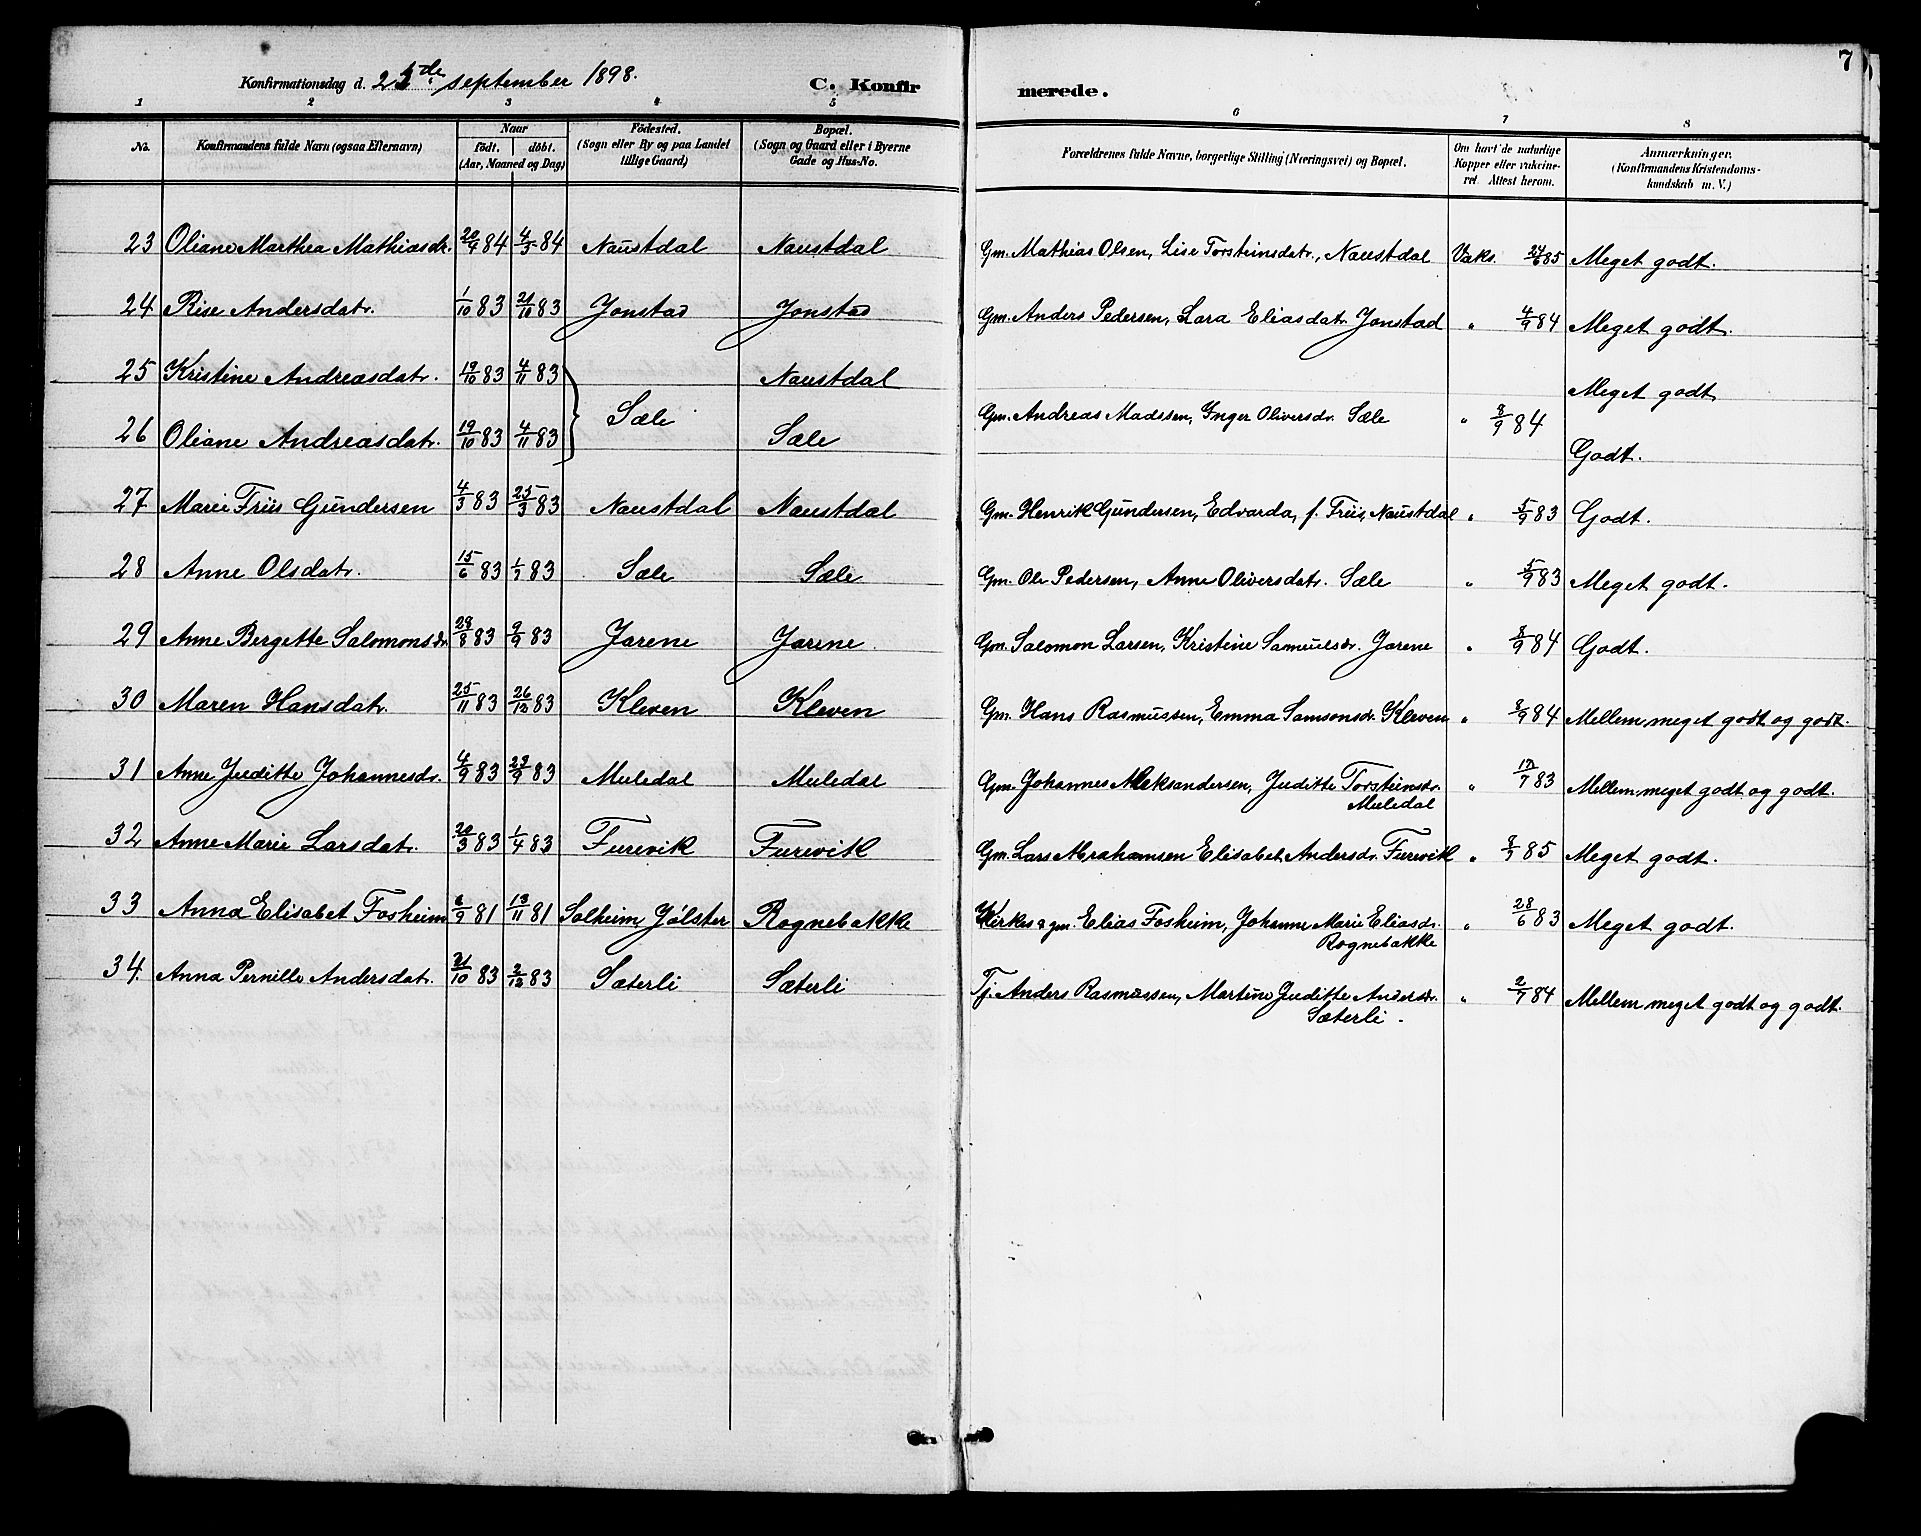 7
Konfirmationsdag d. 25de september 1898.
C. Konfirmerede.
1 2 3 4 5 6 7 8
No.
Konfirmandens fulde Navn (ogsaa Efternavn)
Naar
født. døbt.
(Aar, Maaned og Dag)
Födested.
(Sogn eller By og paa Landet
tillige Gaard)
Bopæl.
(Sogn og Gaard eller i Byerne
Gade og Hus-No.
Forældrenes fulde Navne, borgerlige Stilling (Næringsvei) og Bopæl.
Om havt de naturlige
Kopper eller vakcine-
ret. Attest herom.
Anmærkninger.
(Konfirmandens Kristendoms-
kundskab m. V.)
23 Oliane Marthea Mathiasdr. 20/4 84 4/5 84 Naustdal Naustdal Gm. Mathias Olsen, Lise Torsteinsdatr., Naustdal Vaks. 24/6 85 Meget godt.
24 Rise Andersdatr. 1/10 83 21/10 83 Jonstad Jonstad Gm. Anders Pedersen, Lara Eliasdatr. Jonstad " 4/9 84 Meget godt.
25 Kristine Andreasdatr. 19/10 83 4/11 83 Naustdal Meget godt
Sæle Gm. Andreas Madssen, Ynger Oliversdr. Sæle " 8/9 84
26 Oliane Andreasdatr. 19/10 83 4/11 83 Sæle Godt.
27 Marie Friis Gundersen 4/3 83 25/3 83 Naustdal Naustdal Gm. Henrik Gundersen, Edvarda, f. Friis, Naustdal " 5/9 83 Godt.
28 Anne Olsdatr. 15/6 83 1/7 83 Sæle Sæle Gm. Ole Pedersen, Anne Oliversdatr. Sæle " 5/9 83 Meget godt.
29 Anne Bergette Salomonsdr. 28/8 83 9/9 83 Jarene Jarene. Gm. Salomon Larsen, Kristine Samuelsdr. Jarene " 8/9 84 Godt.
30 Maren Hansdatr. 25/11 83 26/12 83 Kleven Kleven Gm. Hans Rasmussen, Emma Samsonsdr. Kleven " 8/9 84 Mellem meget godt og godt.
31 Anne Juditte Johannesdr. 4/9 83 23/9 83 Muledal Muledal Gm. Johannes Aleksandersen, Juditte Torsteinsdr. " 12/7 83 Mellem meget godt og godt.
Muledal
32 Anne Marie Larsdatr. 20/3 83 1/4 83 Furevik Furevik Gm. Lars Abrahamsen Elisabet Andersdr. Furevik " 8/7 85 Meget godt.
33 Anna Elisabet Fosheim 6/9 81 13/11 81 Solheim, Jølster Rognebakke Kirkes. & gm. Elias Fosheim, Johanne Marie Eliasdr. " 28/6 83 Meget godt.
Rognebakke
34. Anna Pernille Andersdatr. 21/10 83 2/12 83 Sæterli Sæterli Tj. Anders Rasmussen, Martine Juditte Andersdr. " 2/7 84 Mellem meget godt og godt.
Sæterli.